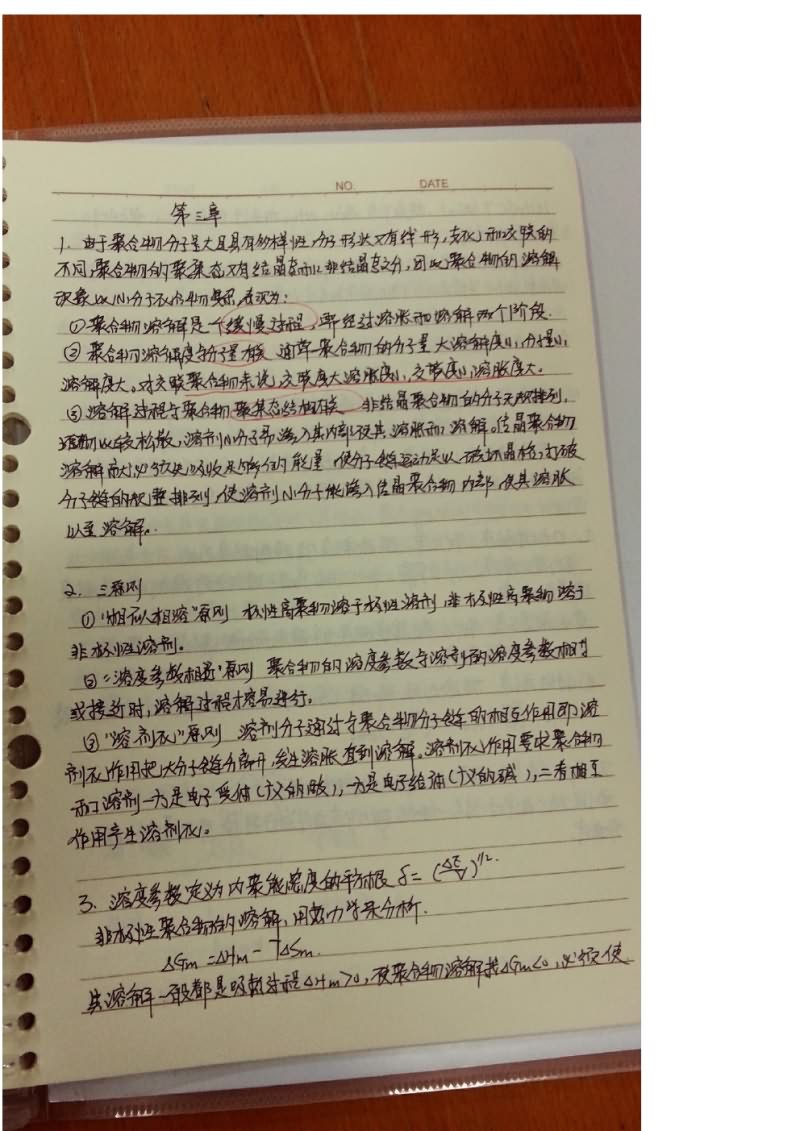 NO. DATE
第三章
1. 由于聚合物分子量大且具有多样性,分子形状又有线形,支化和交联的
不同,聚合物的聚集态又有结晶态和非结晶态之分,因此聚合物的溶解
现象比小分子化合物复杂,表现为:
①聚合物溶解是一个缓慢过程,要经过溶胀和溶解两个阶段.
② 聚合物溶解度与分子量有关 通常聚合物的分子量大溶解度小,分子量小,
溶解度大。对交联聚合物来说,交联度大溶胀度小,交联度小溶胀度大。
③溶解过程与聚合物聚集态结构有关 非结晶聚合物的分子无规排列,
堆砌比较松散,溶剂小分子易渗入其内部使其溶胀和溶解。结晶聚合物
溶解前必须先吸收足够的能量,使分子链运动足以破坏晶格,打破
分子链的规整排列,使溶剂小分子能渗入结晶聚合物内部,使其溶胀
以至溶解。
2. 三原则
①“相似相溶”原则 极性高聚物溶于极性溶剂,非极性高聚物溶于
非极性溶剂。
②“溶度参数相近”原则 聚合物的溶度参数与溶剂的溶度参数相等
或接近时,溶解过程才容易进行。
③“溶剂化”原则 溶剂分子通过与聚合物分子链的相互作用即溶
剂化作用把大分子链分离开,发生溶胀直到溶解。溶剂化作用要求聚合物
和溶剂一方是电子受体(广义的酸),一方是电子给体(广义的碱),二者相互
作用产生溶剂化。
3. 溶度参数定义为内聚能密度的平方根 δ=(ΔE/V)^1/2.
非极性聚合物的溶解,用热力学来分析.
ΔGm=ΔHm-TΔSm.
其溶解一般都是吸热过程ΔHm>0,要聚合物溶解找ΔGm<0,必须使